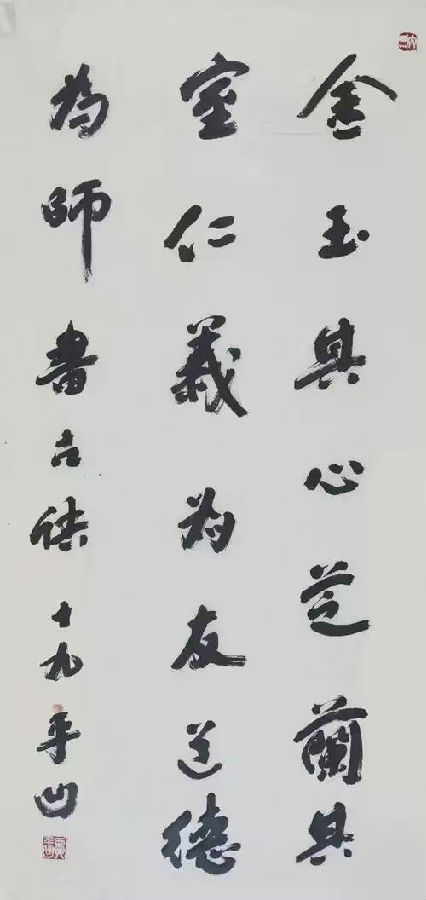 金玉其心芝蘭其
室仁義为友道德
為師書古訣十九平凹